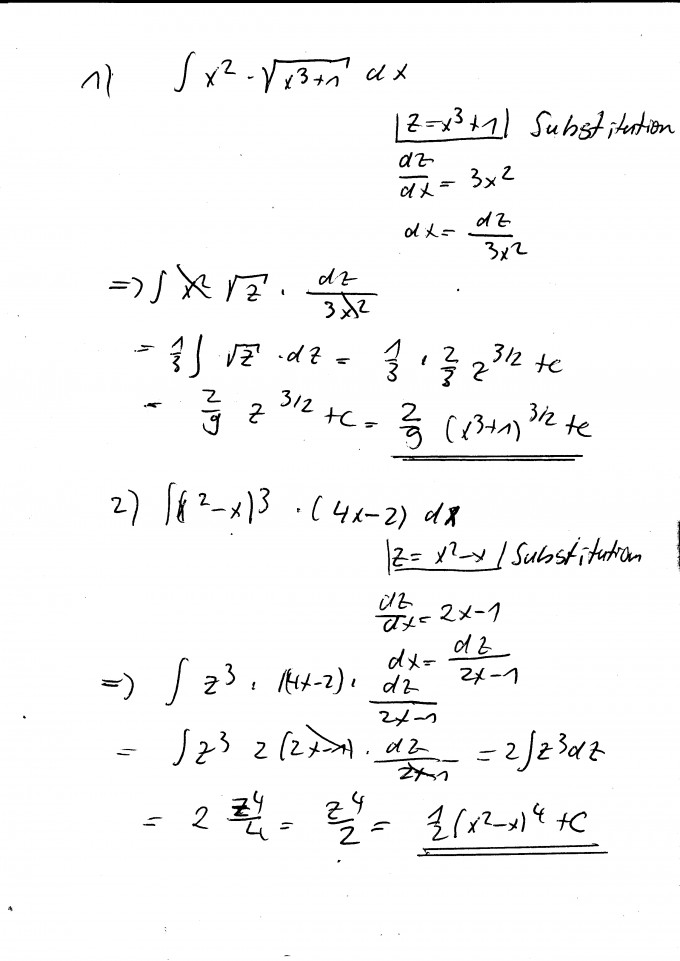 1) ∫ x² · √(x³+1) dx
|z=x³+1| Substitution
dz/dx = 3x²
dx = dz/3x²
=> ∫ x² √z · dz/3x²
= 1/3 ∫ √z · dz = 1/3 · 2/3 z^3/2 +c
= 2/9 z^3/2 +c = 2/9 (x³+1)^3/2 +c
2) ∫(x²-x)³ · (4x-2) dx
|z= x²-x| Substitution
dz/dx = 2x-1
dx = dz/2x-1
=> ∫ z³ · (4x-2) · dz/2x-1
= ∫ z³ 2 (2x-1) · dz/2x-1 = 2∫z³dz
= 2 z⁴/4 = z⁴/2 = 1/2 (x²-x)⁴ +C